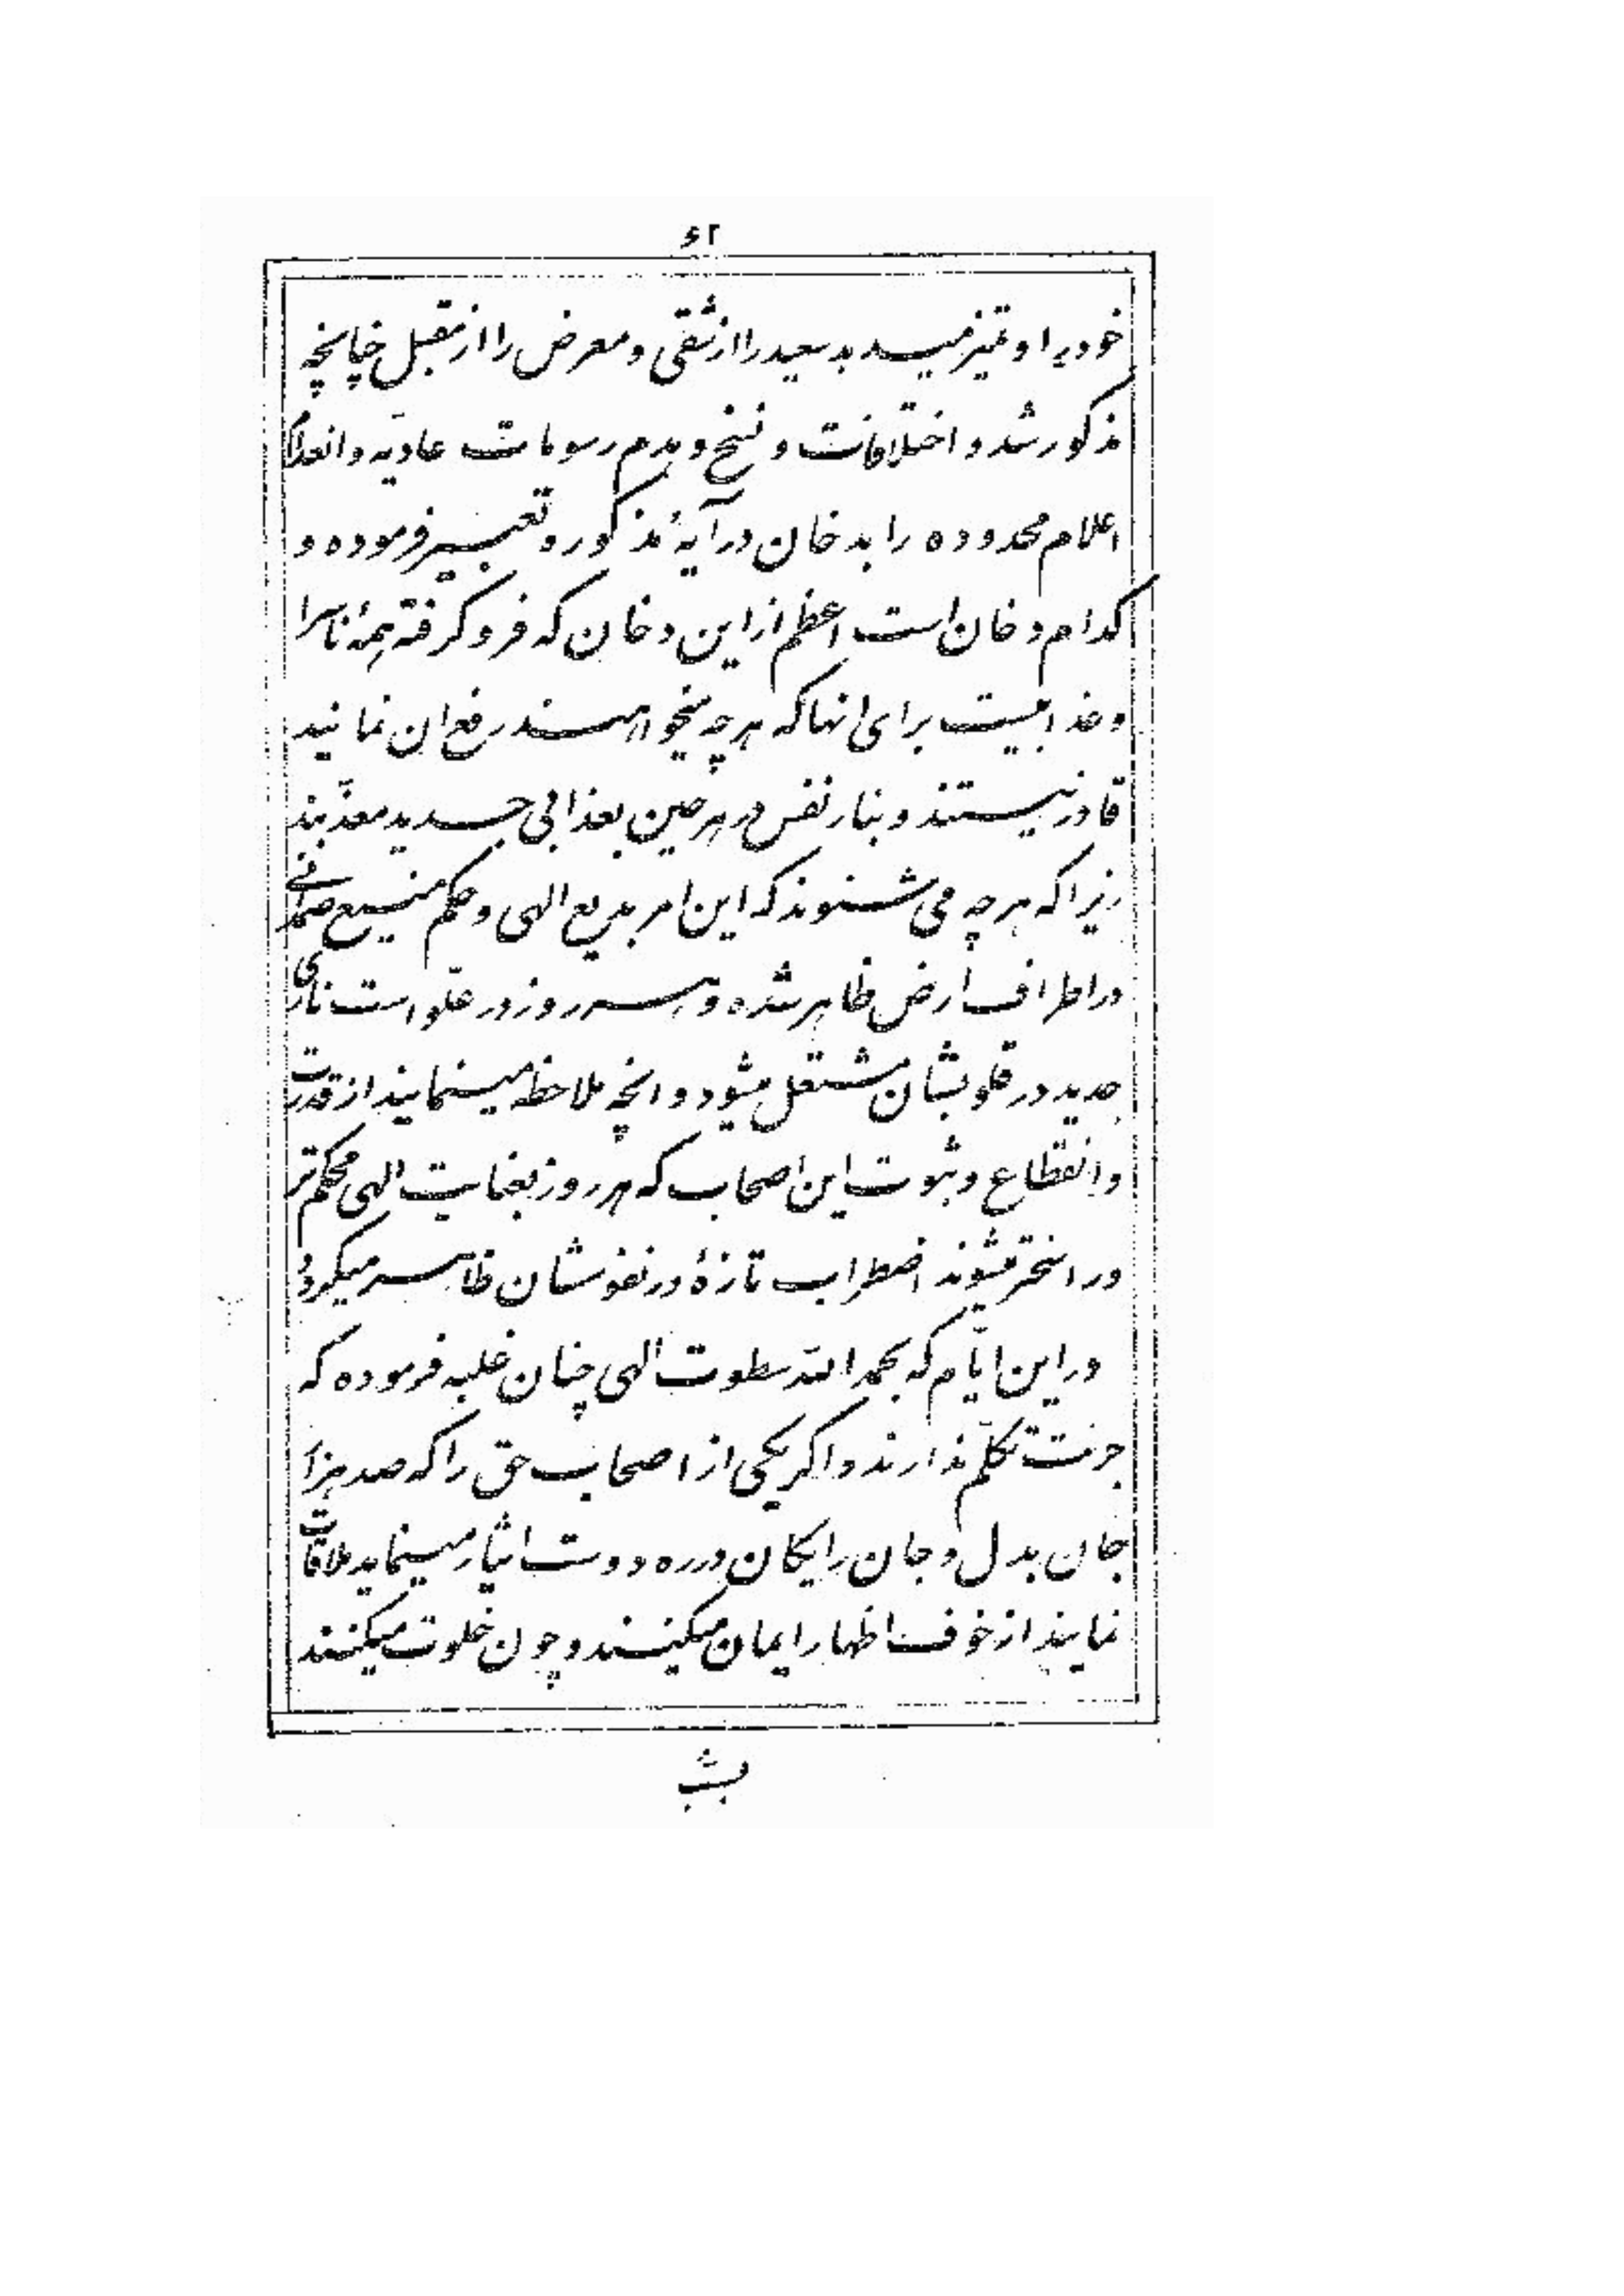 ۶۲
خود را و تمیز میدهد سعید را از شقی و معرض را از مقبل چنانچه
مذکور شد و اختلافات و نسخ و هدم رسومات عادیّه و انعدام
اعلام محدوده را بدخان در آیهٔ مذکوره تعبیر فرموده و
کدام دخان است اعظم از این دخان که فرو گرفته همهٔ ناس را
و عذابیست برای انها که هر چه میخواهند رفع ان نمایند
قادر نیستند و بنار نفس در هر حین بعذابی جدید معذّبند
زیرا که هر چه می شنوند که این امر بدیع الهی و حکم منیع صمدانی
در اطراف ارض ظاهر شده و هر روز در علوّ است ناری
جدید در قلوبشان مشتعل میشود و انچه ملاحظه مینمایند از قدرت
و انقطاع و ثبوت این اصحاب که هر روز بعنایت الهی محکم تر
و راسختر میشوند اضطراب تازهٔ در نفوسشان ظاهر میگردد
در این ایّام که بحمد اللّه سطوت الهی چنان غلبه فرموده که
جرئت تکلّم ندارند و اگر یکی از اصحاب حق را که صد هزار
جان بدل و جان رایگان در ره دوست ایثار مینماید ملاقات
نمایند از خوف اظهار ایمان میکنند و چون خلوت میکنند
بسبّ